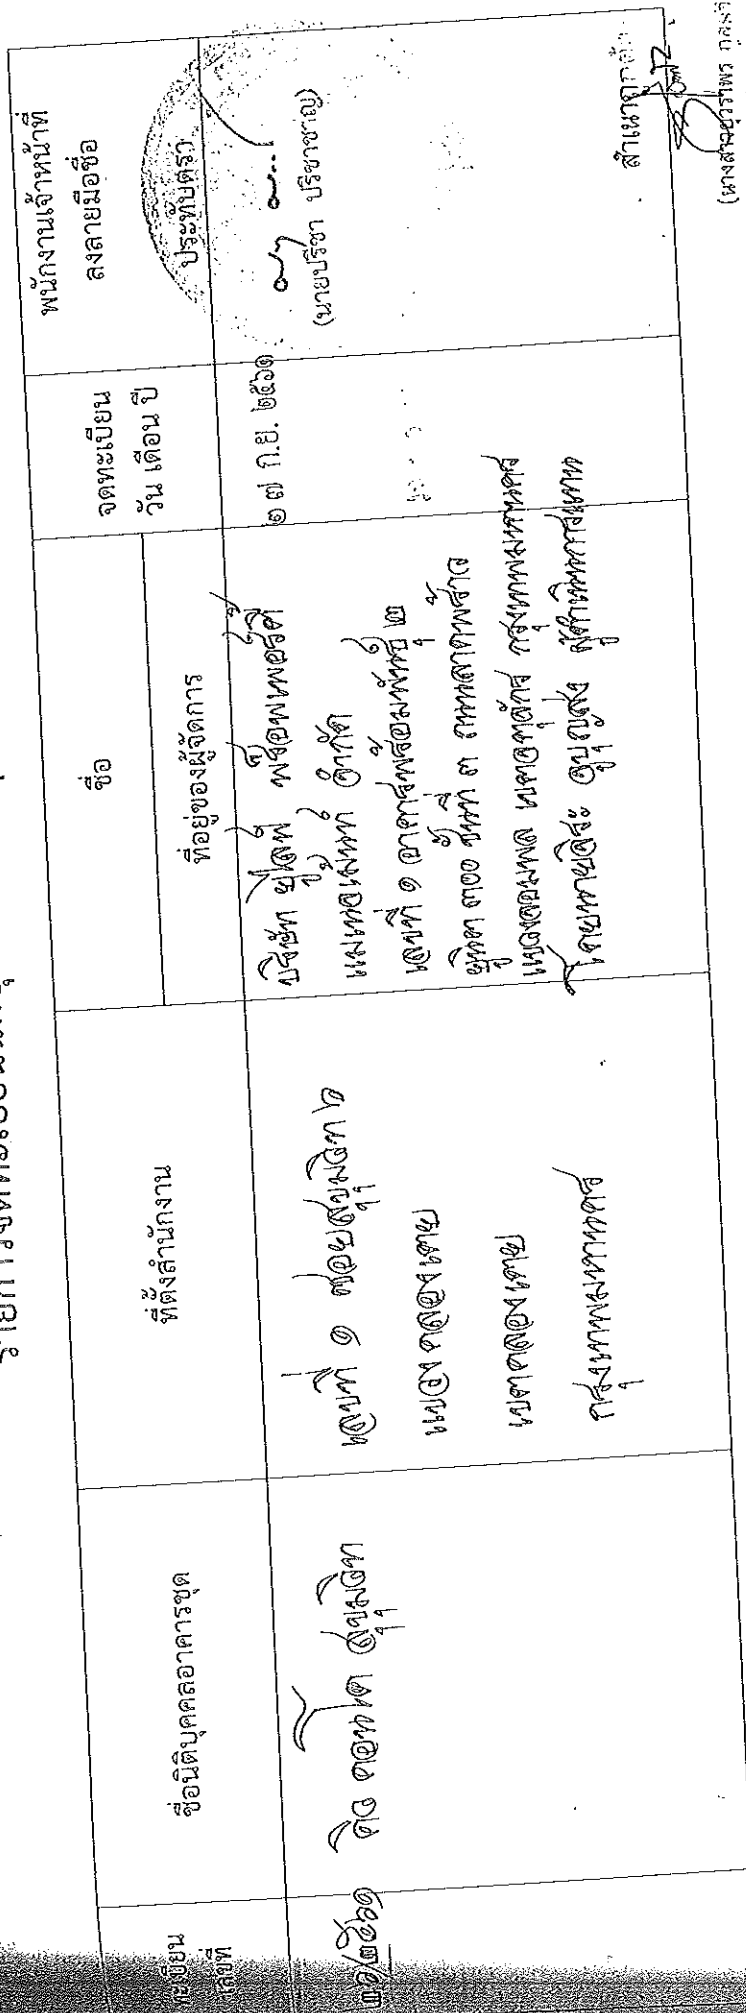 ทะเบียน
เลขที่
ชื่อนิติบุคคลอาคารชุด
ที่ตั้งสำนักงาน
ชื่อ
ที่อยู่ของผู้จัดการ
จดทะเบียน
วัน เดือน ปี
พนักงานเจ้าหน้าที่
ลงลายมือชื่อ
ประทับตรา
๓๖/๒๕๖๑
คิว คอนโด สุขุมวิท
เลขที่ ๑ ซอยสุขุมวิท ๖
แขวงคลองเตย
เขตคลองเตย
กรุงเทพมหานคร
บริษัท ยูไลฟ์ พร็อพเพอร์ตี้
แมเนจเม้นท์ จำกัด
เลขที่ ๑ อาคารพร้อมพันธุ์ ๒
ยูนิต ๓๐๐ ชั้นที่ ๓ ถนนลาดพร้าว
แขวงจอมพล เขตจตุจักร กรุงเทพมหานคร
โดยนายอิสระ บุญสูง ผู้ดำเนินการแทน
๒๗ ก.ย. ๒๕๖๑
(นายปรีชา ปรีชาชาญ)
สำเนาถูกต้อง